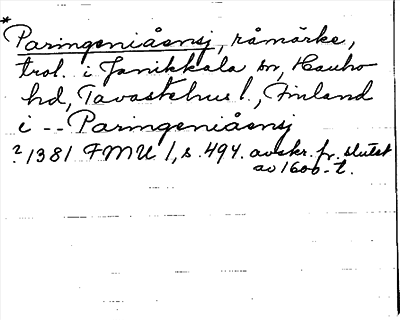 *
Paringeniåensj, råmärke,
trol. i Janikkala sn, Hauho
hd, Tavastehus l., Finland
i -- Paringeniåensj
? 1381 FMU 1, s. 494. avskr. fr. slutet
av 1600-t.